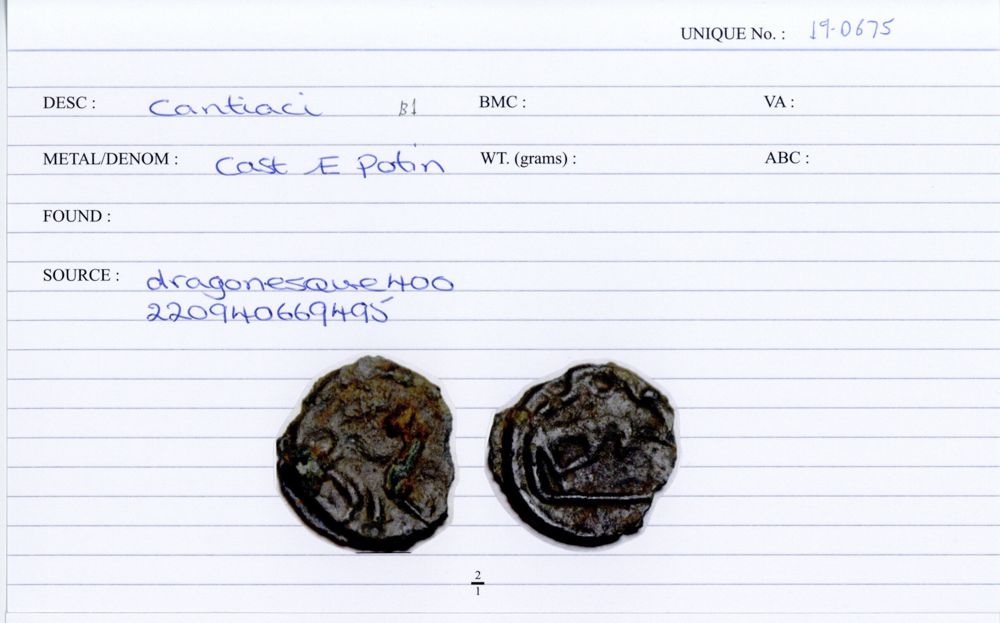 UNIQUE No. : 19-0675
DESC : Cantiaci B1 BMC : VA :
METAL/DENOM : Cast Æ Potin WT. (grams) : ABC :
FOUND :
SOURCE : dragonesque400
220940669495
2
1